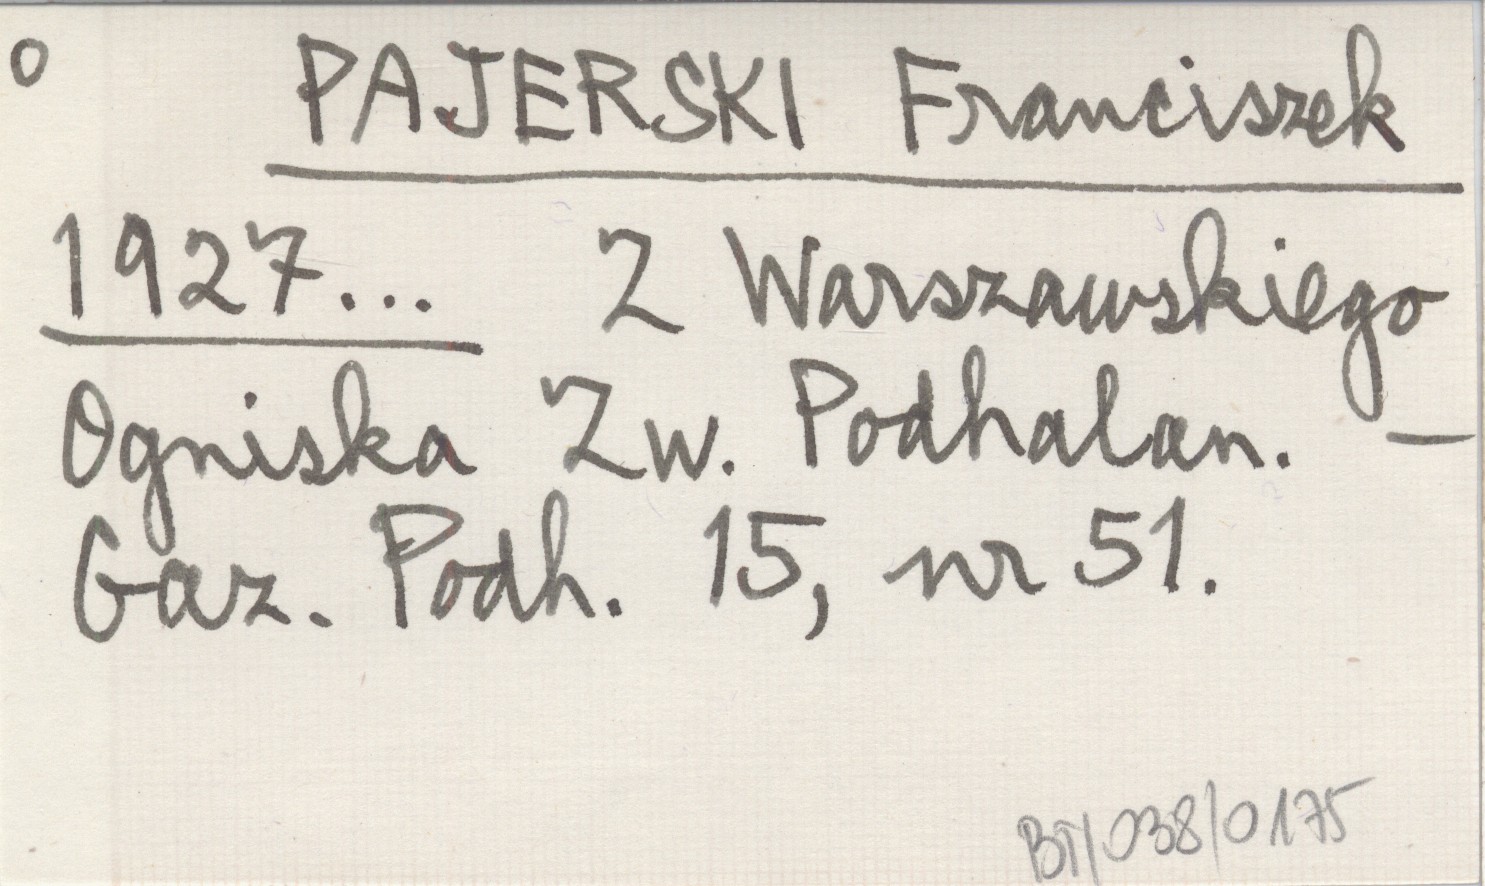 o PAJERSKI Franciszek
1927... Z Warszawskiego
Ogniska Zw. Podhalan. —
Gaz. Podh. 15, nr 51.
BT/038/0175